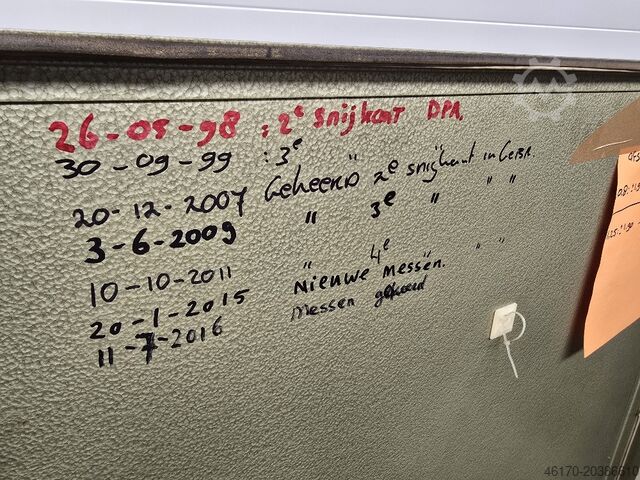 26-05-98 : 2e snijkant DPR.
30-09-99 : 3e "
20-12-2007 Gekeerd 2e snijkant in gebr.
3-6-2009 " 3e " " "
10-10-2011 " 4e " " "
20-1-2015 Nieuwe messen.
11-7-2016 messen gekeerd
46170-20386610